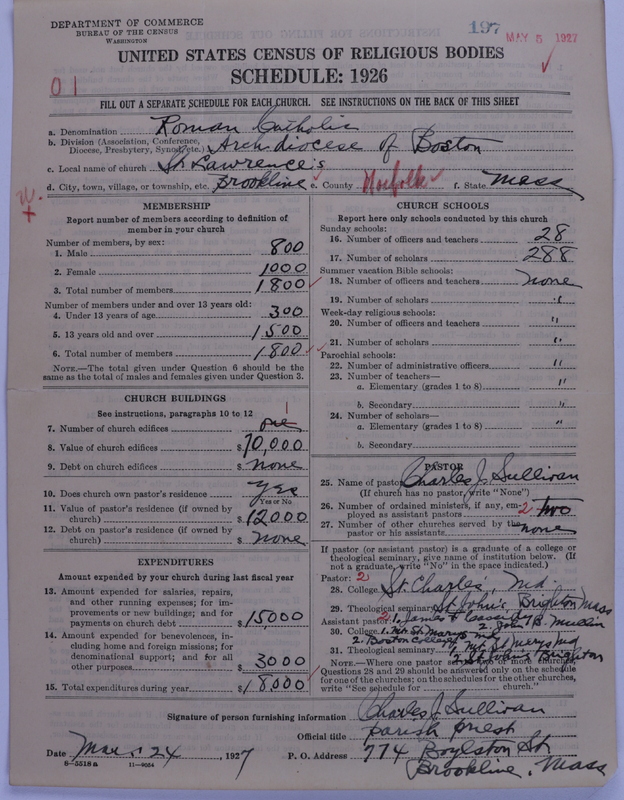 DEPARTMENT OF COMMERCE
BUREAU OF THE CENSUS
WASHINGTON
197
MAY 5 1927
UNITED STATES CENSUS OF RELIGIOUS BODIES
SCHEDULE: 1926
01
FILL OUT A SEPARATE SCHEDULE FOR EACH CHURCH. SEE INSTRUCTIONS ON THE BACK OF THIS SHEET
a. Denomination Roman Catholic
b. Division (Association, Conference, Diocese, Presbytery, Synod, etc.) Archdiocese of Boston
c. Local name of church St. Lawrence's
d. City, town, village, or township, etc. Brookline e. County Norfolk f. State Mass
MEMBERSHIP
Report number of members according to definition of
member in your church
Number of members, by sex:
1. Male 800
2. Female 1000
3. Total number of members 1800
Number of members under and over 13 years old:
4. Under 13 years of age 300
5. 13 years old and over 1500
6. Total number of members 1800
NOTE.—The total given under Question 6 should be
same as the total of males and females given under Question 3.
CHURCH BUILDINGS
See instructions, paragraphs 10 to 12
1
7. Number of church edifices one
8. Value of church edifices $ 70,000
9. Debt on church edifices $ none
10. Does church own pastor's residence yes
Yes or No
11. Value of pastor's residence (if owned by
church) $ 12000
12. Debt on pastor's residence (if owned by
church) $ none
EXPENDITURES
Amount expended by your church during last fiscal year
13. Amount expended for salaries, repairs,
and other running expenses; for im-
provements or new buildings; and for
payments on church debt $ 15000
14. Amount expended for benevolences, in-
cluding home and foreign missions; for
denominational support; and for all
other purposes $ 3000
15. Total expenditures during year $ 18000
CHURCH SCHOOLS
Report here only schools conducted by this church
Sunday schools:
16. Number of officers and teachers 28
17. Number of scholars 288
Summer vacation Bible schools:
18. Number of officers and teachers none
19. Number of scholars "
Week-day religious schools:
20. Number of officers and teachers "
21. Number of scholars "
Parochial schools:
22. Number of administrative officers "
23. Number of teachers—
a. Elementary (grades 1 to 8) "
b. Secondary "
24. Number of scholars—
a. Elementary (grades 1 to 8) "
b. Secondary
PASTOR
25. Name of pastor Charles J. Sullivan
(If church has no pastor, write "None")
26. Number of ordained ministers, if any, em-
ployed as assistant pastors 2 two
27. Number of other churches served by the
pastor or his assistants none
If pastor (or assistant pastor) is a graduate of a college or
theological seminary, give name of institution below. (If
not a graduate, write "No" in the space indicated.)
Pastor: 2
28. College St. Charles, Md.
29. Theological seminary St. John's, Brighton Mass
Assistant pastor: 2 1. James F. 2. John B. Mullin
30. College 1. Mt. St. Marys Md
2. Boston College
31. Theological seminary 1. Mt. St. Marys, Md
2. St. Johns Brighton
NOTE.—Where one pastor serves two or more churches,
Questions 28 and 29 should be answered only on the schedule
for one of the churches; on the schedules for the other churches,
write "See schedule for church."
Signature of person furnishing information Charles J. Sullivan
Official title parish priest
Date Mar. 24, 1927 P. O. Address 774 Boylston St.
Brookline, Mass
8-5518a 11-9054